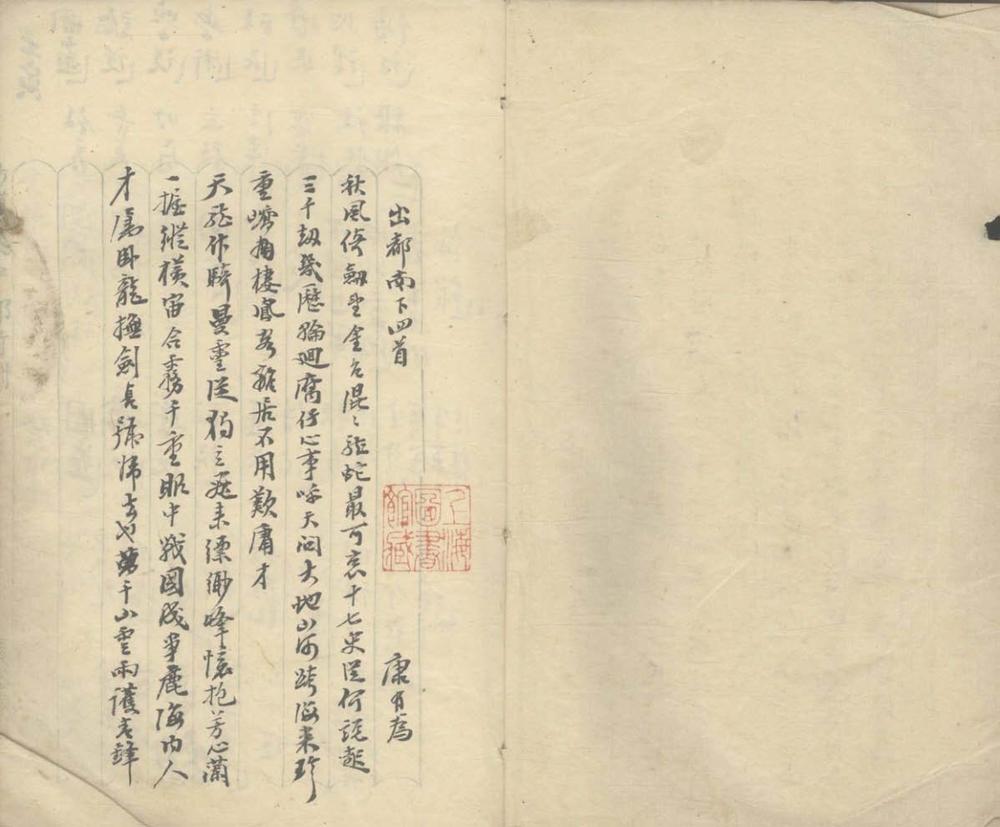 出都南下四首 康有為
秋風倚劍金台混〻龍蛇最可哀十七史從何說起
三千劫幾歷輪迴腐儒心事呼天問大地山河跨海來珍
重棲鳳居不用歎庸才
天龍作騎萬靈從獨立飛來縹緲峰懷抱芳心蘭
一握縱橫宙合霧千重眼中戰國成爭鹿海內人
才屬臥龍撫劍長號歸去也千山雲雨護青鋒
上海圖書館藏